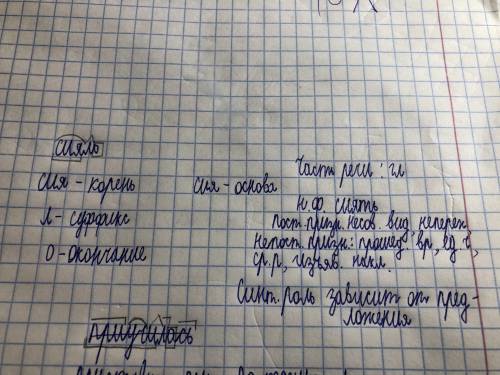 сияло
сия - корень
л - суффикс
о - окончание
сия - основа
Часть речи: гл
Н.ф. сиять
Пост. призн. несов. вид, неперех,
непост. призн: прошед. вр, ед. ч,
ср.р, изъяв. накл.
Синт. роль зависит от пред-
ложения
приучилась